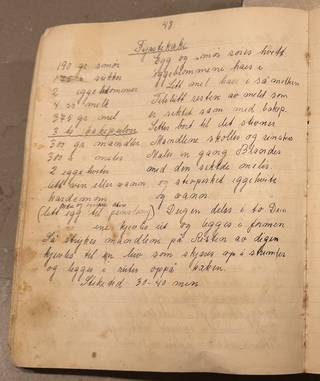 43.
Fyrstekake
190 gr smör Egg og smör røres hvitt
sukker eggeblommene has i
2 eggeblommer Litt mel has i så melken
4 ss melk Tilslutt resten av melet som
375 gr mel er siktet sam med bakep.
3 ts bakepulver Settes bort til det stivner
300 gr mandler Mandlene skolles og renskes
300 " melis Males en gang Blandes
2 eggehviter med den siktede melis.
litt vann og stivpisket eggehvite
kardemom og vann.
(litt egg til pensling) Deigen deles i to Den
ene kjevles ut og legges i formen
Så strykes mandlene på Resten av deigen
kjevles til en leiv som skjæres op i strimler
og legges i ruter oppå kaken.
Steketid 30-40 min